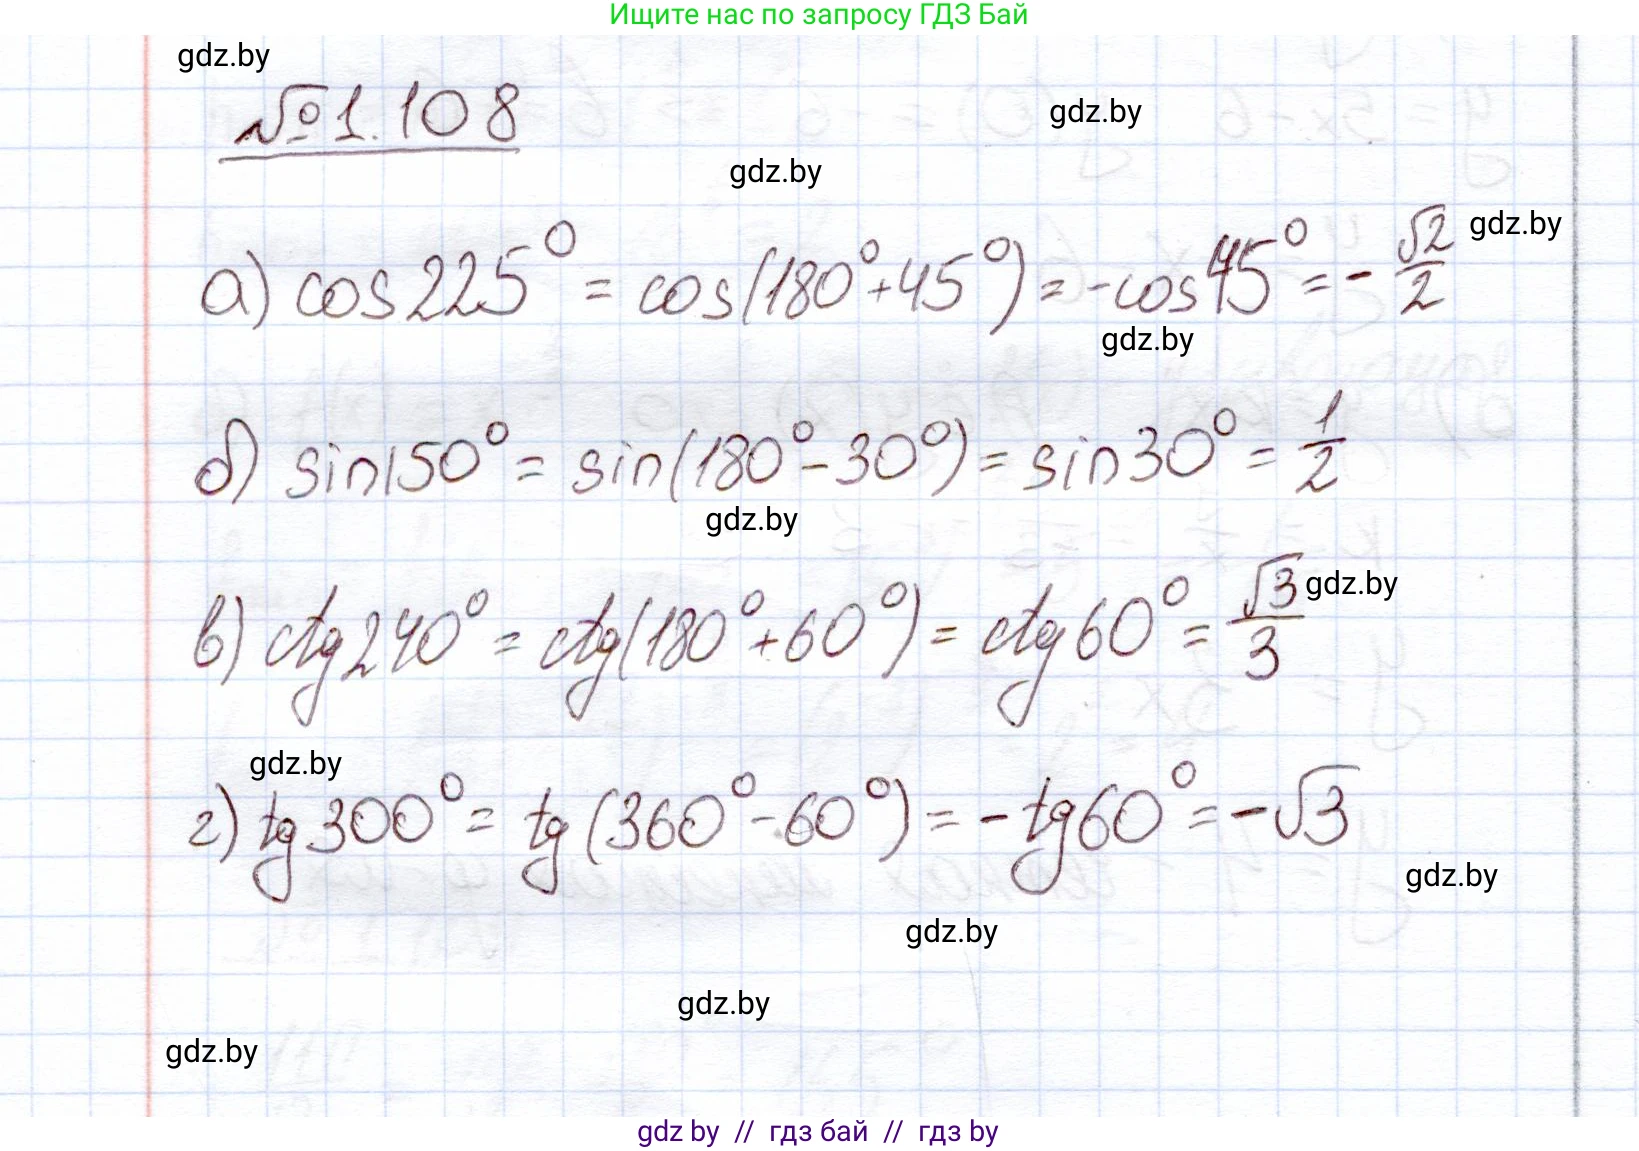 Ищите нас по запросу ГДЗ Бай
gdz.by
№1.108
gdz.by
gdz.by
gdz.by
а) cos225° = cos(180°+45°) = -cos45° = -√2/2
gdz.by
б) sin150° = sin(180°-30°) = sin30° = 1/2
gdz.by
gdz.by
в) ctg240° = ctg(180°+60°) = ctg60° = √3/3
gdz.by
г) tg300° = tg(360°-60°) = -tg60° = -√3
gdz.by
gdz.by
gdz.by
gdz.by
gdz by // гдз бай // гдз by